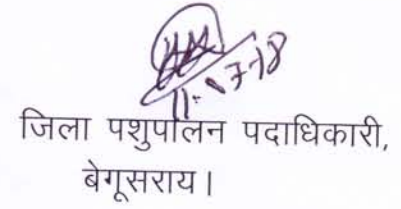 11.07.18
जिला पशुपालन पदाधिकारी,
बेगूसराय।